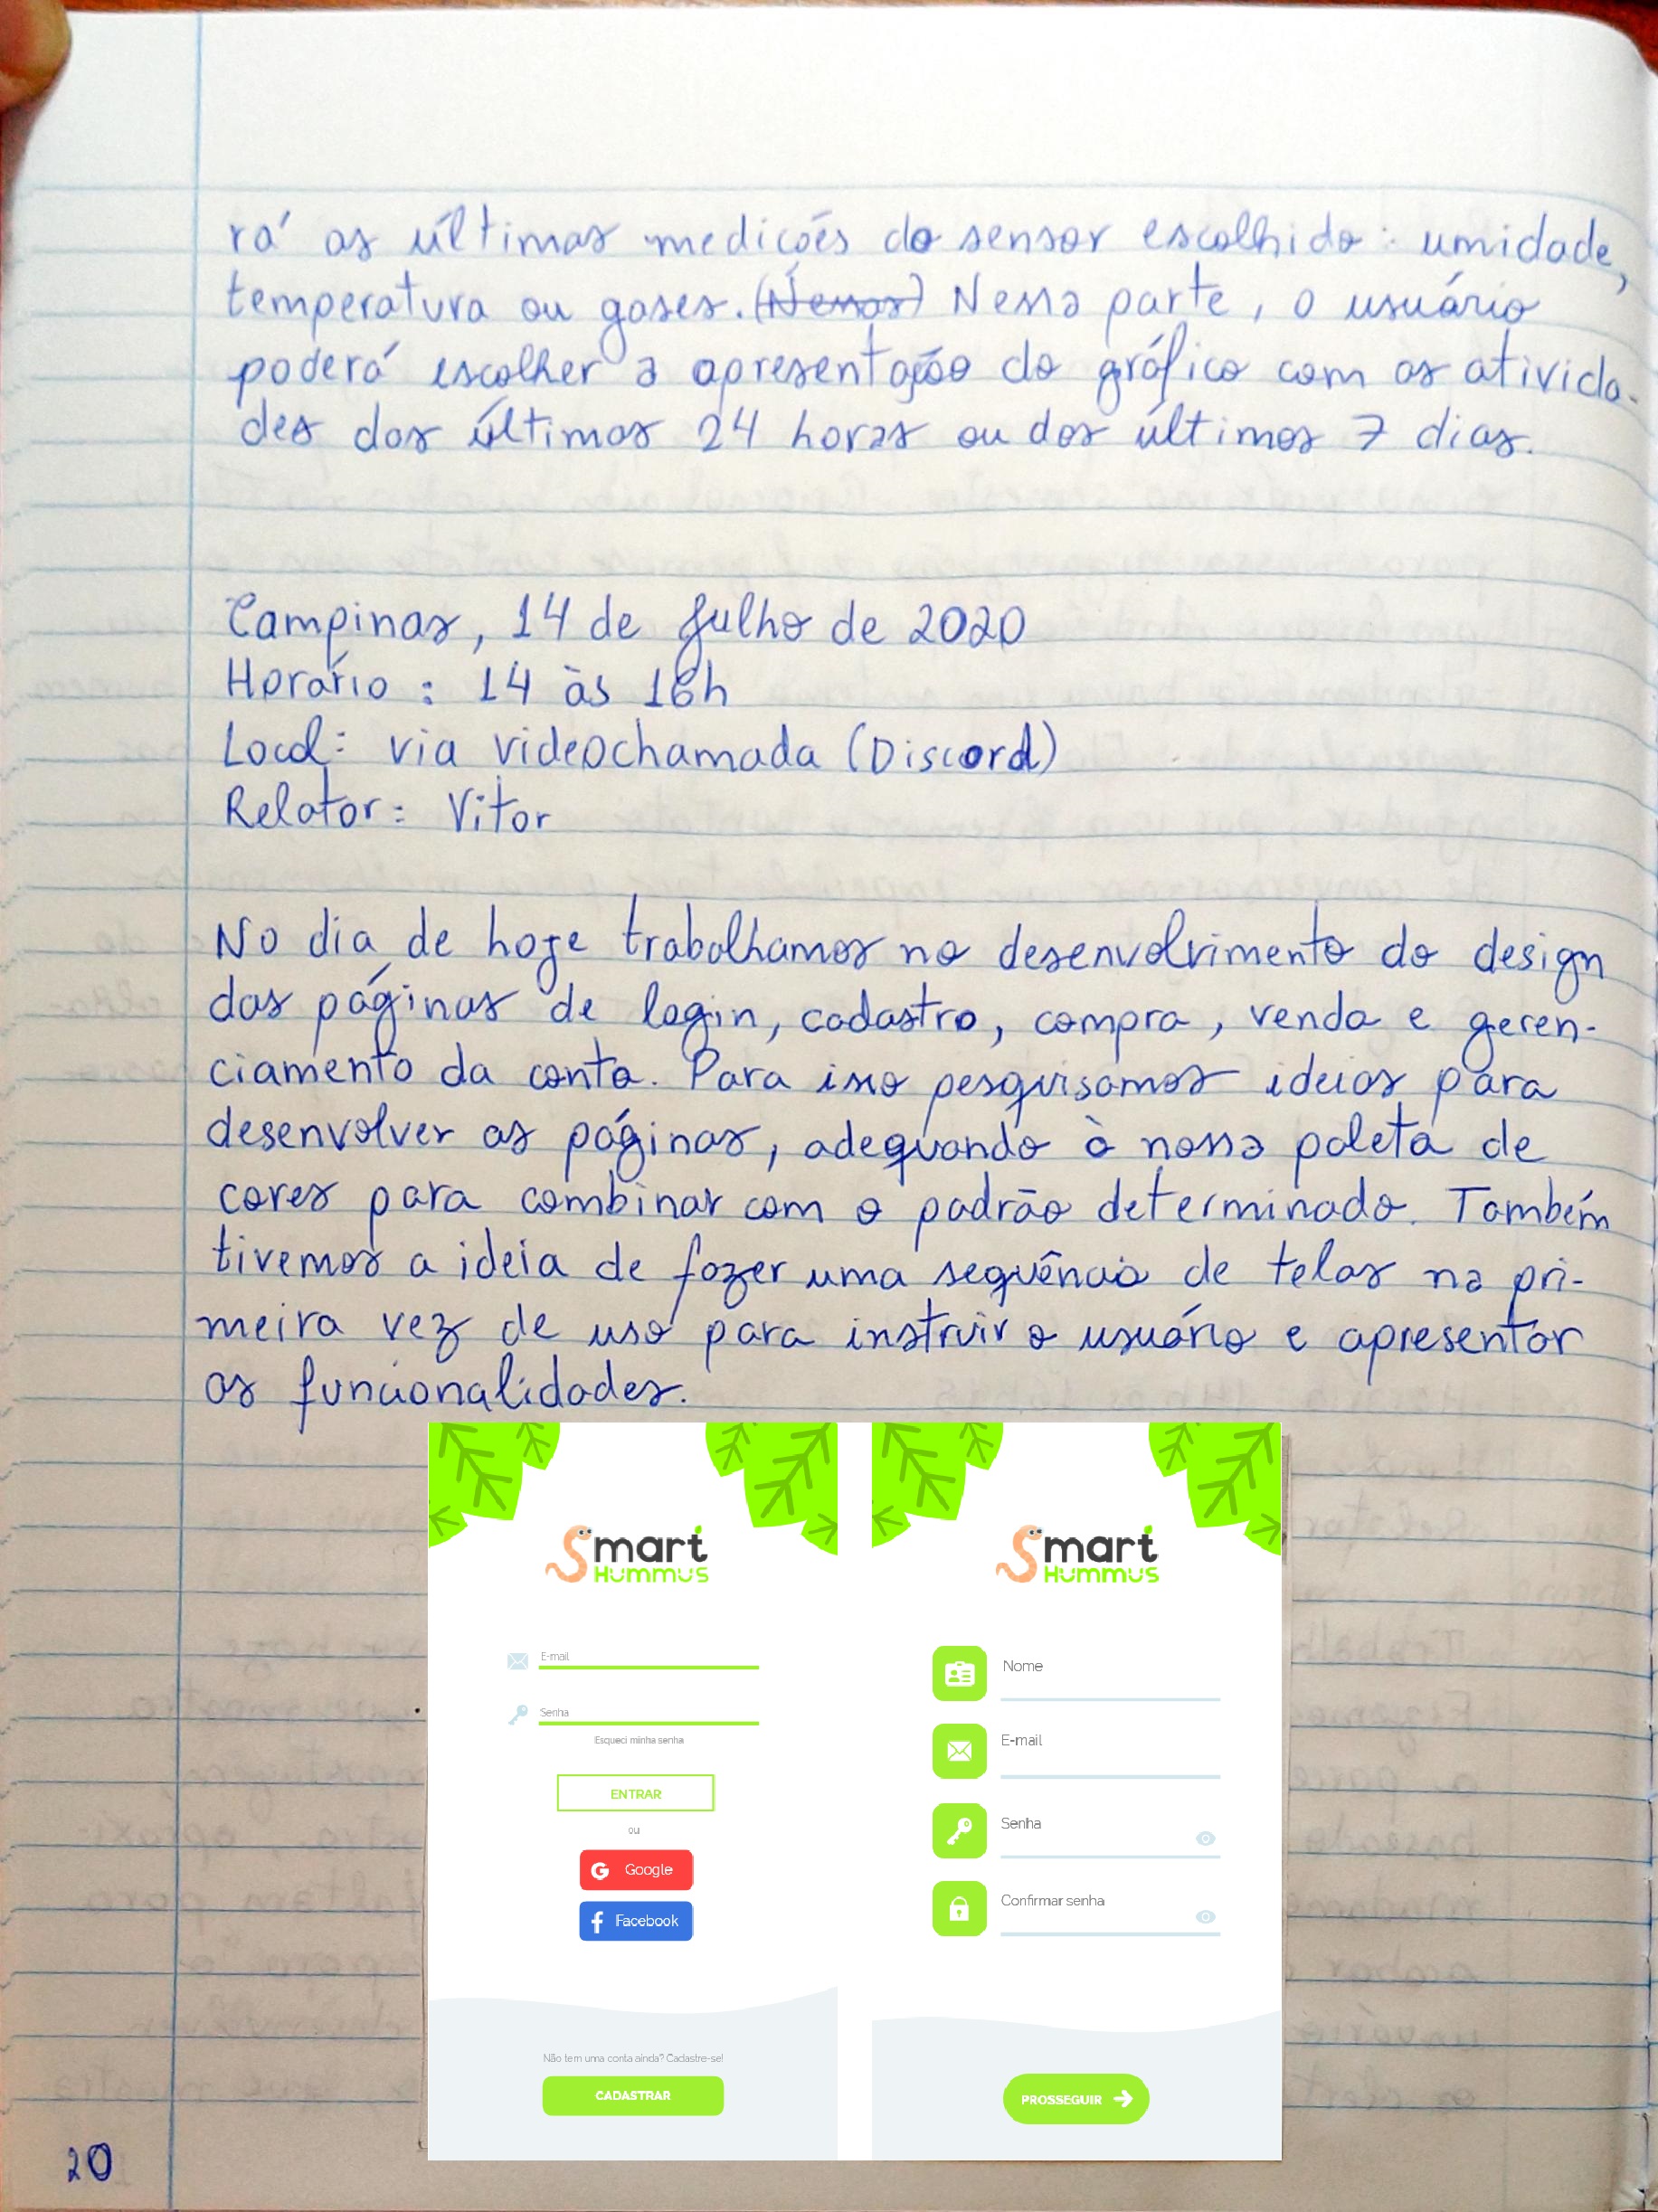 rá as últimas medições do sensor escolhido: umidade,
temperatura ou gases. (Nessas) Nessa parte, o usuário
poderá escolher a apresentação do gráfico com as ativida-
des das últimas 24 horas ou dos últimos 7 dias.
Campinas, 14 de Julho de 2020
Horário: 14 às 16h
Local: via videochamada (Discord)
Relator: Vitor
No dia de hoje trabalhamos no desenvolvimento do design
das páginas de login, cadastro, compra, venda e geren-
ciamento da conta. Para isso pesquisamos ideias para
desenvolver as páginas, adequando à nossa paleta de
cores para combinar com o padrão determinado. Também
tivemos a ideia de fazer uma sequência de telas na pri-
meira vez de uso para instruir o usuário e apresentar
as funcionalidades.
Smart
Hummus
E-mail
Senha
Esqueci minha senha
ENTRAR
ou
Google
Facebook
Não tem uma conta ainda? Cadastre-se!
CADASTRAR
Smart
Hummus
Nome
E-mail
Senha
Confirmar senha
PROSSEGUIR
20